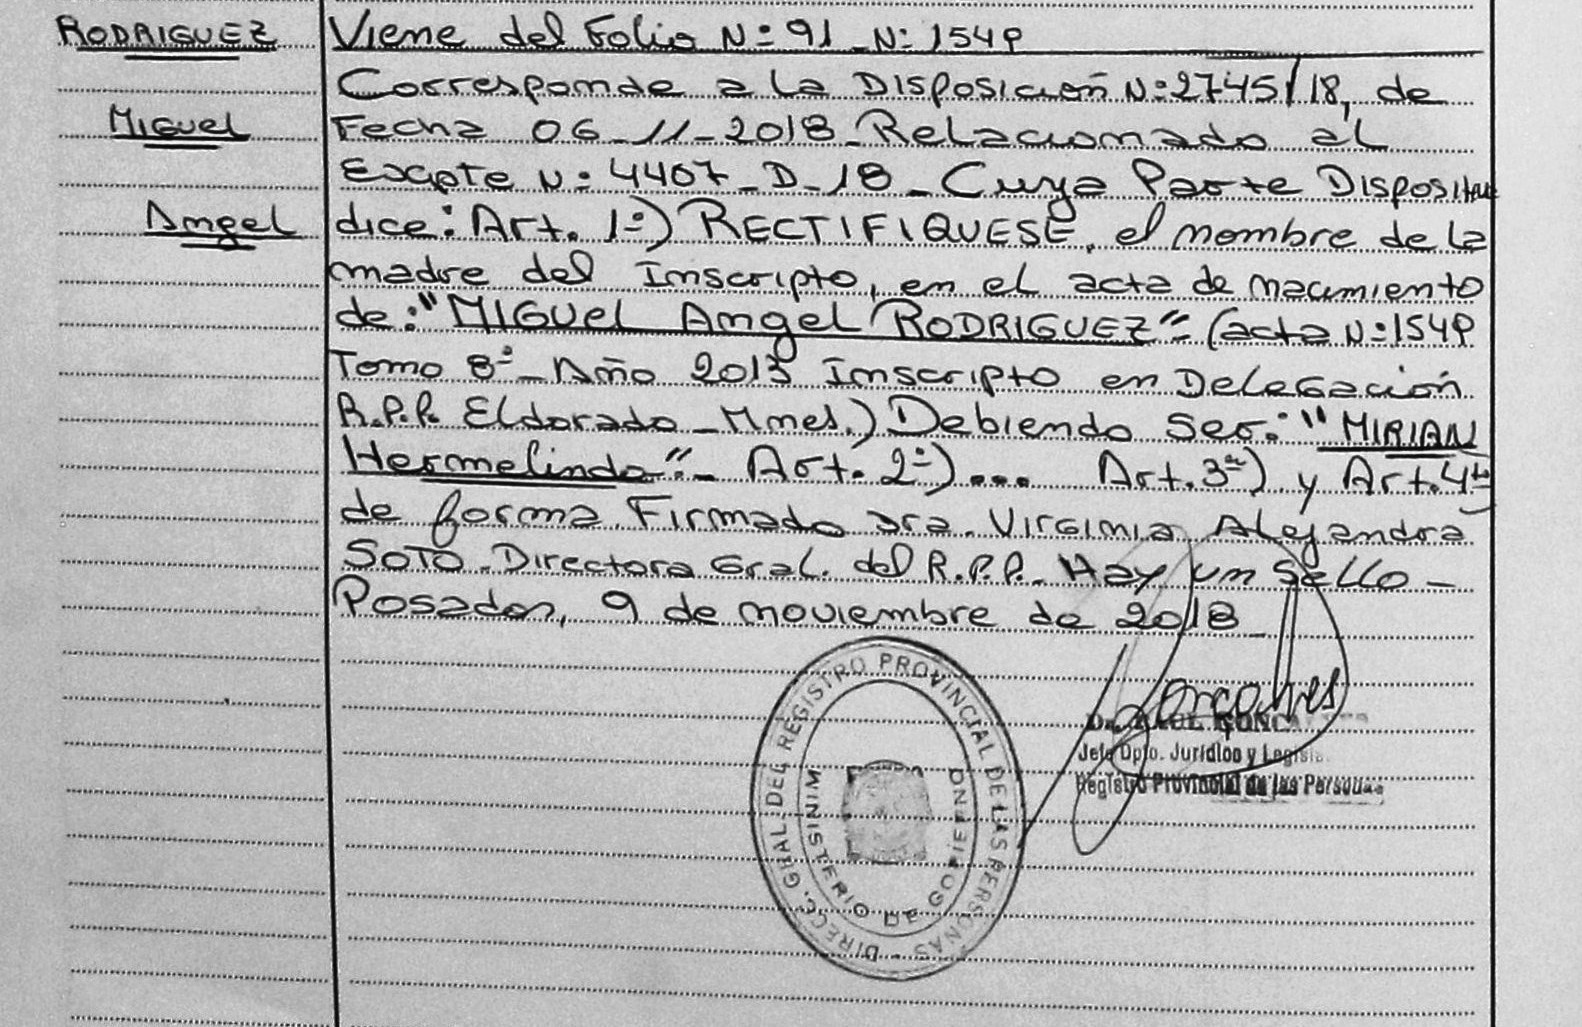 RODRIGUEZ
Miguel
Angel
Viene del Folio Nº 91 - Nº 1549
Corresponde a la Disposición Nº 2745/18, de
Fecha 06-11-2018 - Relacionado al
Expte Nº 4407-D-18 - Cuya Parte Dispositiva
dice: Art. 1º) RECTIFIQUESE, el nombre de la
madre del Inscripto, en el acta de nacimiento
de: "MIGUEL Angel RODRIGUEZ" - (acta Nº 1549
Tomo 8º - Año 2013 Inscripto en Delegación
R.P.P. Eldorado - Mnes.) Debiendo Ser: "MIRIAN
Hermelinda" - Art. 2º) ... Art. 3º) y Art. 4º
de forma Firmado Dra. Virginia Alejandra
SOTO - Directora Gral. del R.P.P. - Hay un Sello -
Posadas, 9 de noviembre de 2018
DIRECC. GRAL. DEL REGISTRO PROVINCIAL DE LAS PERSONAS
MINISTERIO DE GOBIERNO
Dr. RAUL GONCA
Jefe Dpto. Jurídico y Legisla
Registro Provincial de las Personas